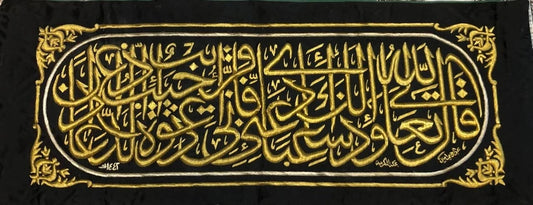 قال الله تعالى وإذا سألك عبادي عني فإني قريب أجيب دعوة الداع إذا دعان